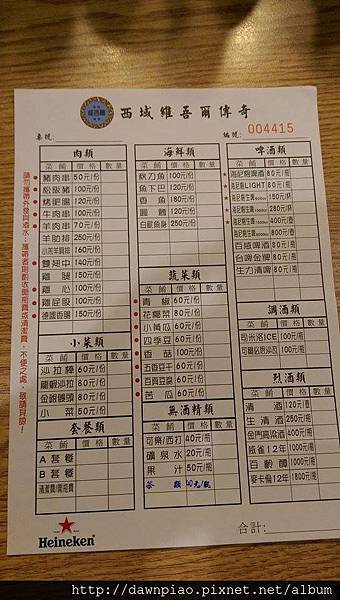 西域維吾爾傳奇
桌號:
編號: 004415
請勿攜帶外食與酒水,
肉類
菜餚 價格 數量
豬肉串 50元/份
松級豬 100元/份
烤肥腸 120元/份
牛肉串 100元/份
羊肉串 70元/份
羊肋排 250元/份
160元/份
雞翅中 140元/份
雞腿 150元/份
雞心 100元/份
雞屁股 100元/份
德國香腸 150元/份
小菜類
菜餚 價格 數量
沙拉棒 60元/份
龍蝦沙拉 80元/份
金銀饅頭 80元/份
小菜 50元/份
套餐類
菜餚 價格 數量
A套餐
B套餐
清潔費/開瓶費
海鮮類
菜餚 價格 數量
秋刀魚 100元/份
魚下巴 120元/份
香魚 180元/份
圓鱈 120元/份
白鯧魚身 250元/份
蔬菜類
菜餚 價格 數量
青椒 60元/份
花椰菜 80元/份
小黃瓜 60元/份
四季豆 60元/份
香菇 100元/份
五香豆干 60元/份
百頁豆腐 60元/份
苦瓜 60元/份
無酒精類
菜餚 價格 數量
可樂/西打 40元/瓶
礦泉水 20元/瓶
果汁 50元/瓶
茶類 40元/瓶
啤酒類
菜餚 價格 數量
海尼根啤酒 80元/瓶
海尼根LIGHT 80元/瓶
150元/杯
280元/杯
400元/壺
800元/壺
百威啤酒 80元/瓶
台啤金牌 80元/瓶
生力清啤 80元/瓶
調酒類
菜餚 價格 數量
司米洛ICE 100元/瓶
100元/瓶
烈酒類
菜餚 價格 數量
清酒 120元/壺
生清酒 250元/瓶
金門高粱酒 400元/瓶
威雀12年 1000元/瓶
百齡醇 1000元/瓶
麥卡倫12年 1800元/瓶
Heineken
合計:
http://dawnpiao.pixnet.net/album